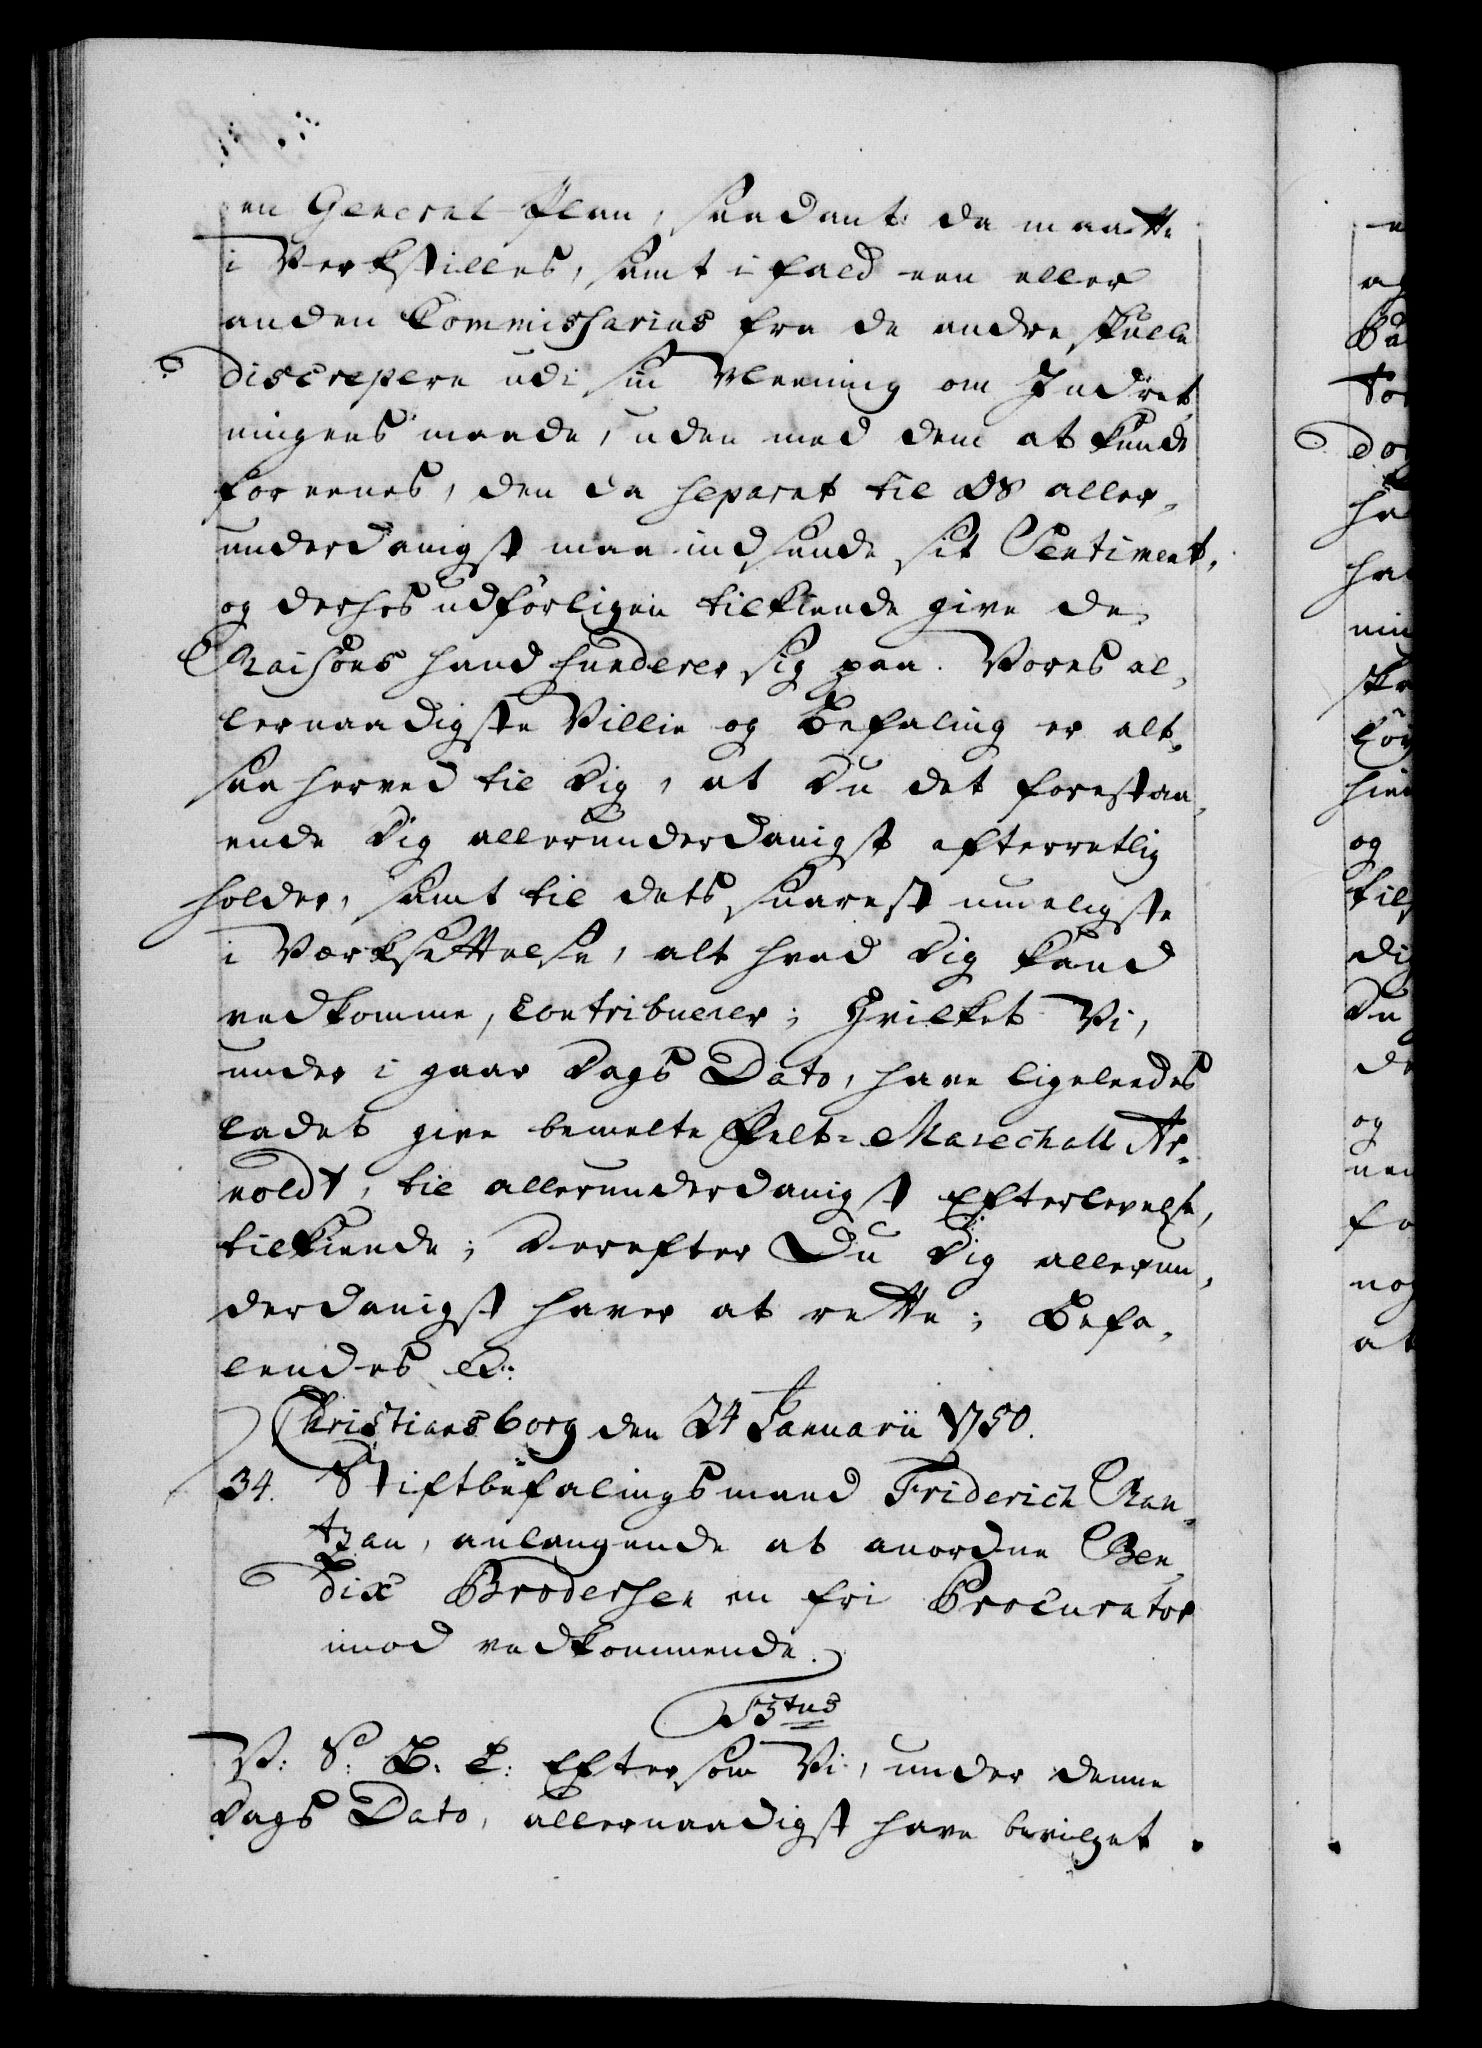 en General-Plan, saadant da maatte
i Verkstilles, samt i fald een eller
anden Commissarius fra de andre skulle
discrepere udi sin Meening om Indret
ningens maade, uden med dem at kunde
foreenes, den da separat til OS aller,
underdanigst maa indsende sit Sentiment,
og derhos udførligen tilkiende give de
Raisons hand funderer sig paa. Vores al,
lernaadigste Villie og Befaling er alt,
saa herved til Dig, at Du det forestaa,
ende Dig allerunderdanigst efterretlig
holder, samt til dets snarest mueligste
i Værksettelse, alt hvad Dig kand
vedkomme, contribuerer; Hvilket Vi,
under i gaar Dags Dato, have ligeleedes
ladet give bemelte Felt-Marechall Ar-
noldt, til allerunderdanigst Efterlevelse,
tilkiende; Derefter Du Dig allerun,
derdanigst haver at rette; Befa,
lendes &:
Christiansborg den 24 Januarii 1750.
34. Stiftbefalingsmand Friderich Ran-
tzau, anlangende at anordne Ben
dix Brodersen en fri Procurator
imod vedkommende.
V: S: B. T: Eftersom Vi, under denne
Dags Dato, allernaadigst have bevilget